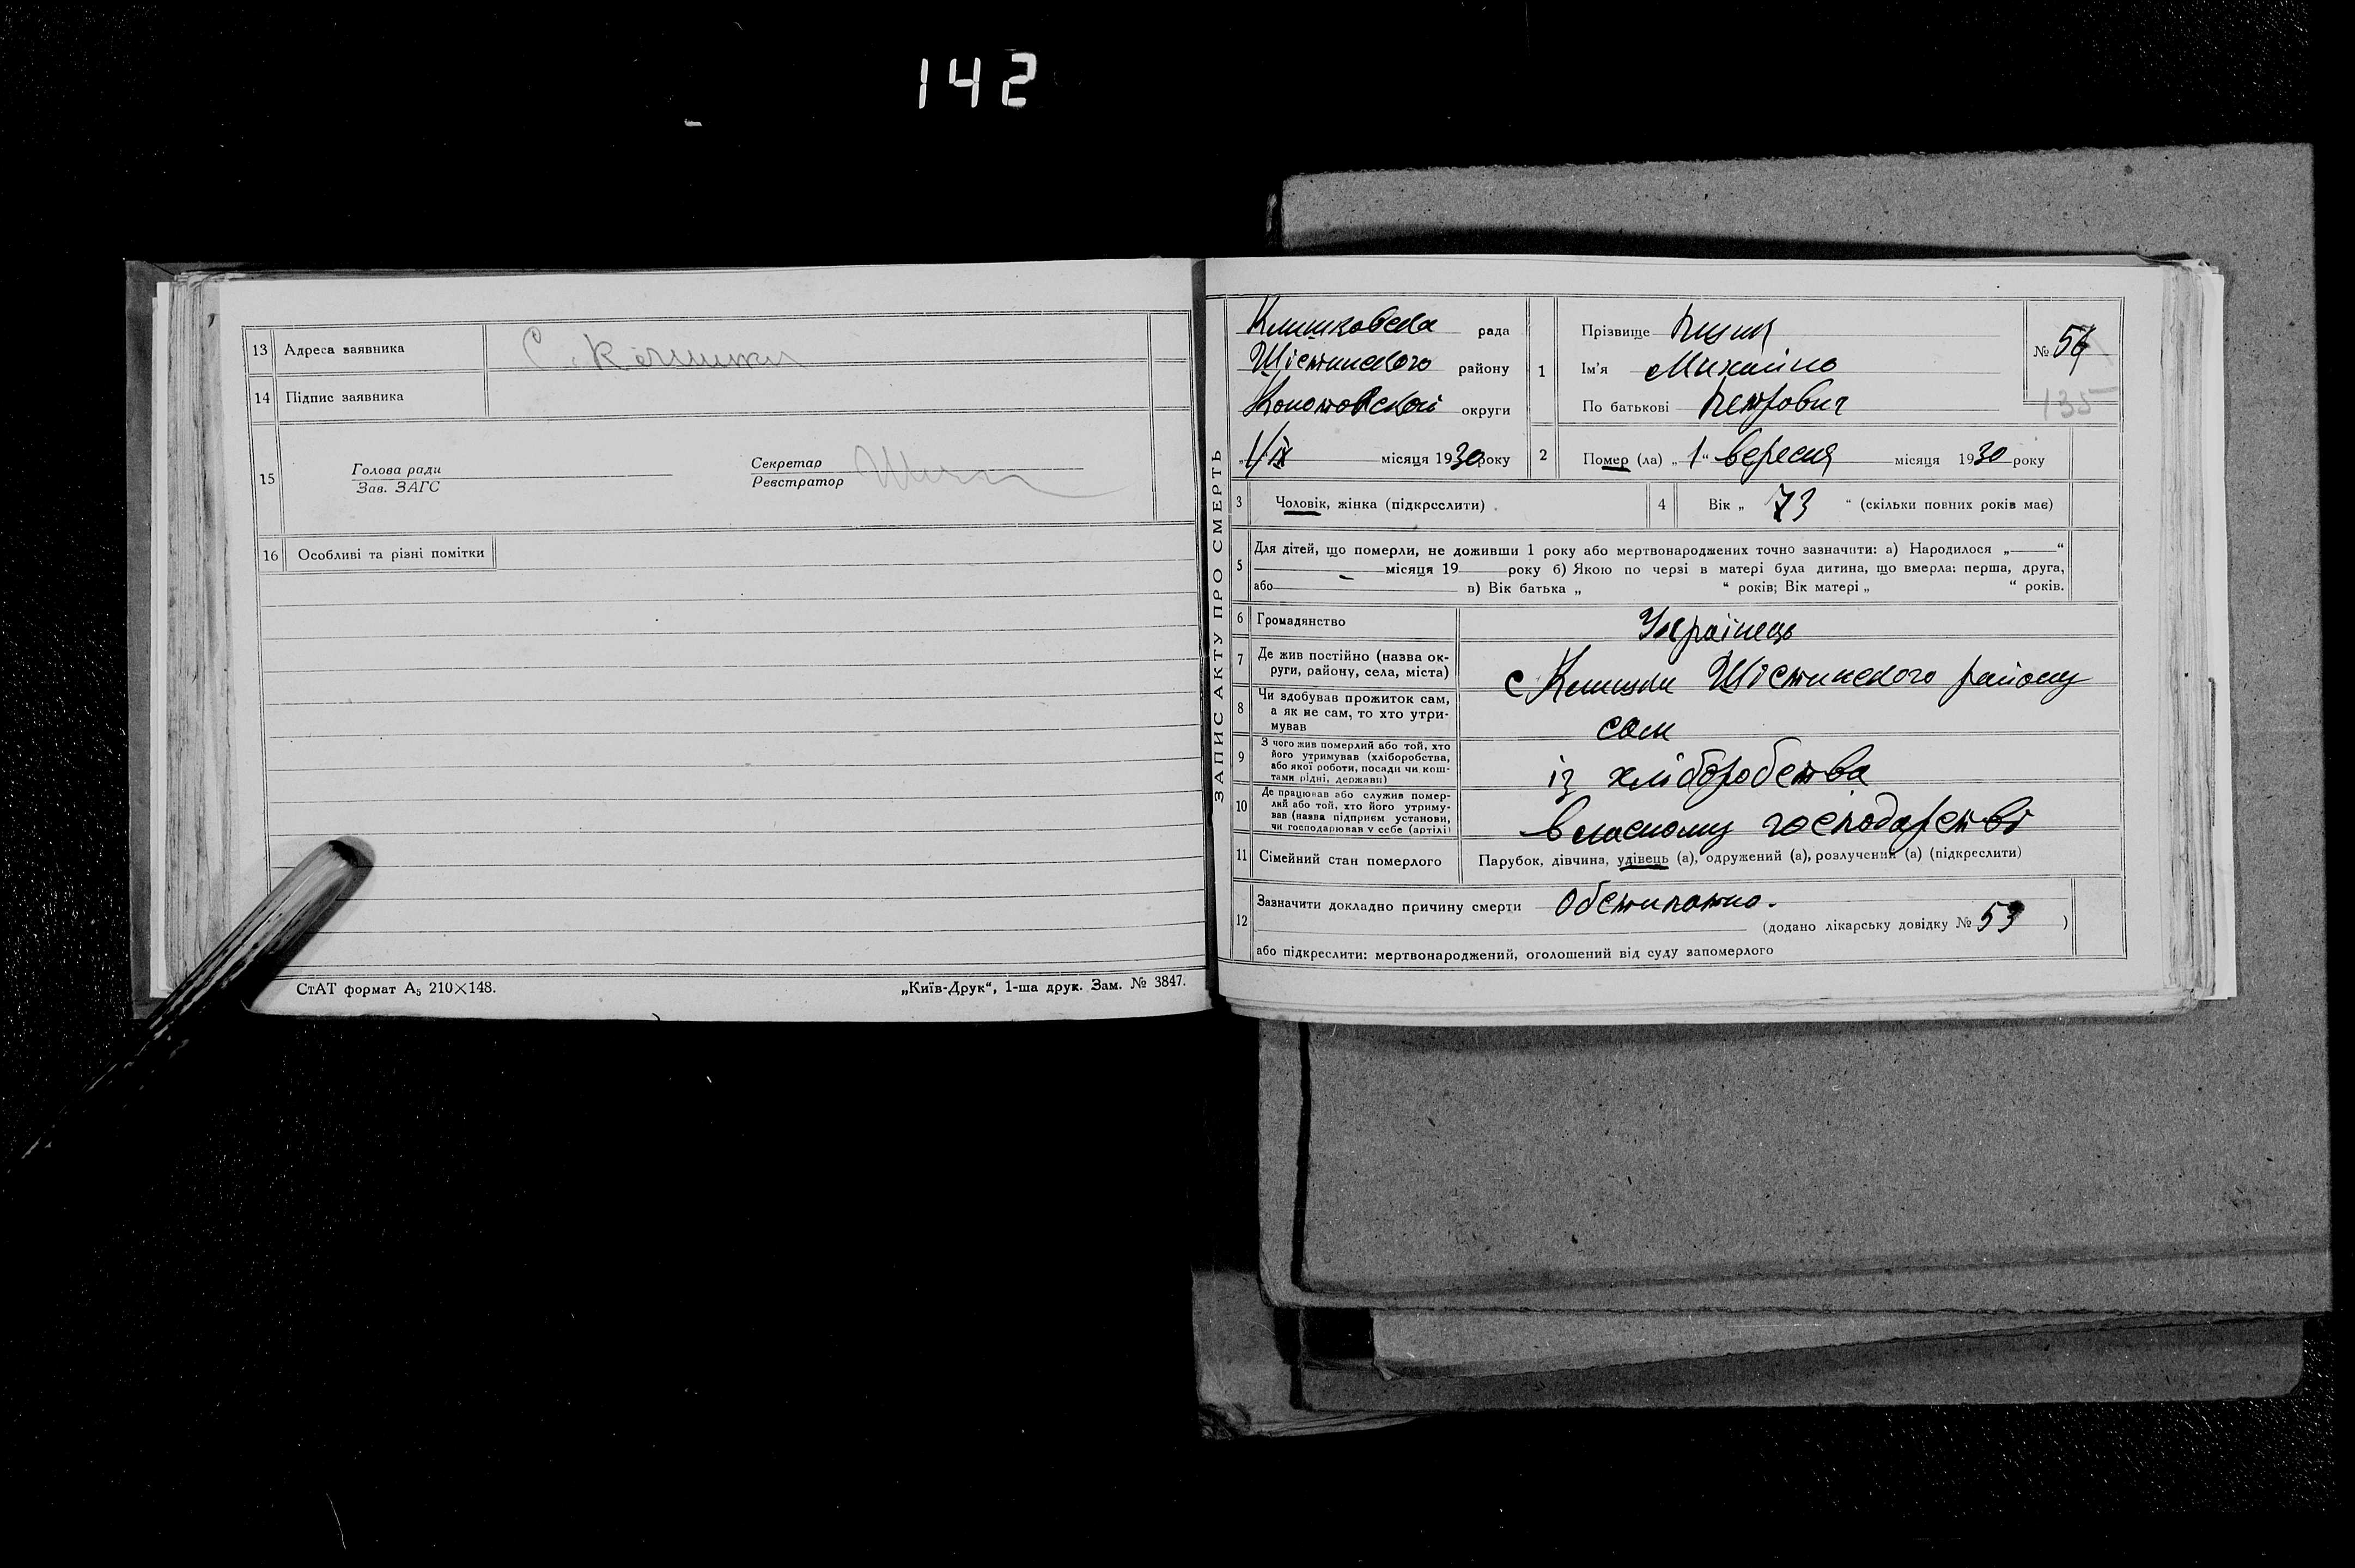 142
13 Адреса заявника С. Клишки
14 Підпис заявника
15 Голова ради
Зав. ЗАГС
Секретар
Реєстратор
16 Особливі та різні помітки
СтАТ формат А5 210×148.
„Київ-Друк“, 1-ша друк. Зам. № 3847.
ЗАПИС АКТУ ПРО СМЕРТЬ
Клишковска рада
Шістинского району
Конотопской округи
„1/ІХ місяця 1930 року
1 Прізвище
Ім'я Михайло
По батькові Петрович
№ 57
135
2 Помер (ла) „1“ вересня місяця 1930 року
3 Чоловік, жінка (підкреслити)
4 Вік „ 73 “ (скільки повних років має)
5 Для дітей, що померли, не доживши 1 року або мертвонароджених точно зазначити: а) Народилося „ “
місяця 19 року б) Якою по черзі в матері була дитина, що вмерла: перша, друга,
або в) Вік батька „ “ років; Вік матері „ “ років.
6 Громадянство Українець
7 Де жив постійно (назва ок-
руги, району, села, міста) с Клишки Шістинского району
8 Чи здобував прожиток сам,
а як не сам, то хто утри-
мував сам
9 З чого жив померлий або той, хто
його утримував (хліборобства,
або якої роботи, посади чи кош-
тами рідні, держави) із хліборобства
10 Де працював або служив помер-
лий або той, хто його утриму-
вав (назва підприєм установи,
чи господарював у себе (артілі) власному господарстві
11 Сімейний стан померлого Парубок, дівчина, удівець (а), одружений (а), розлучений (а) (підкреслити)
12 Зазначити докладно причину смерти
(додано лікарську довідку № 53 )
або підкреслити: мертвонароджений, оголошений від суду запомерлого